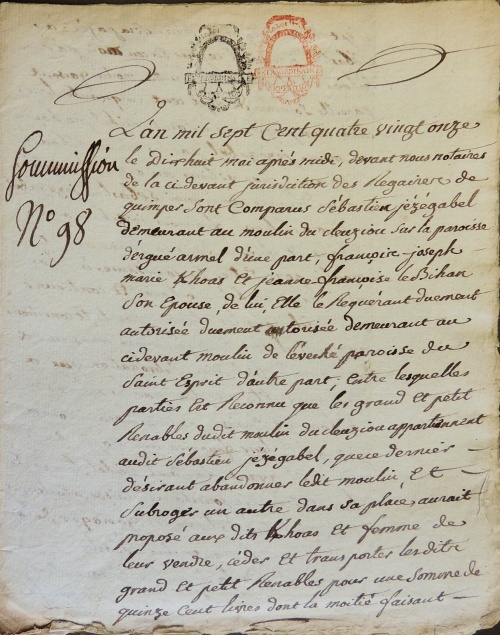 Commission
N° 98
L'an mil sept Cent quatre vingt onze
le Dixhuit mai après midi, devant nous notaires
de la ci devant jurisdiction des Regaires de
quimper Sont Comparus Sébastien jézégabel
demeurant au moulin du cleuziou sur la paroisse
d'ergué armel d'une part, françois-joseph-
marie Khoas Et jeanne françoise le Bihan
Son Epouse, de lui, Elle le Requerant duement
autorisée duement autorisée demeurant au
cidevant moulin de l'eveché paroisse du
Saint Esprit d'autre part; Entre lesquelles
parties Est Reconnu que les grand et petit
Renables dudit moulin du cleuziou appartiennent
audit Sébastien jézégabel, que ce dernier -
désirant abandonner ledit moulin, Et -
Subroger un autre dans sa place, aurait
proposé aux dits Khoas et femme de
leur vendre, céder Et transporter lesdits
grand et petit Renables pour une somme de
quinze Cent livres dont la moitié faisant -